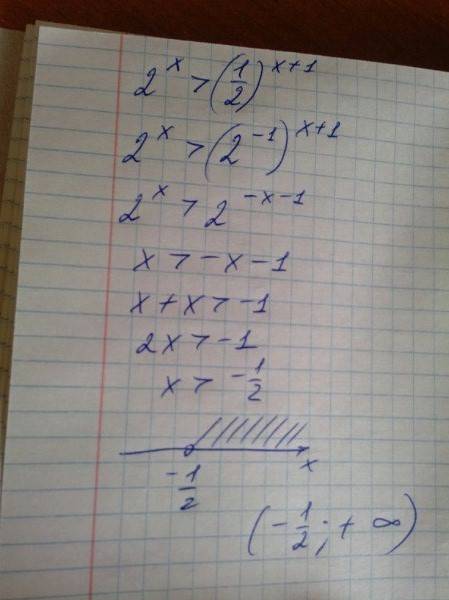 2^x > (1/2)^(x+1)
2^x > (2^(-1))^(x+1)
2^x > 2^(-x-1)
x > -x - 1
x + x > -1
2x > -1
x > -1/2
x
-1/2
(-1/2; + ∞)